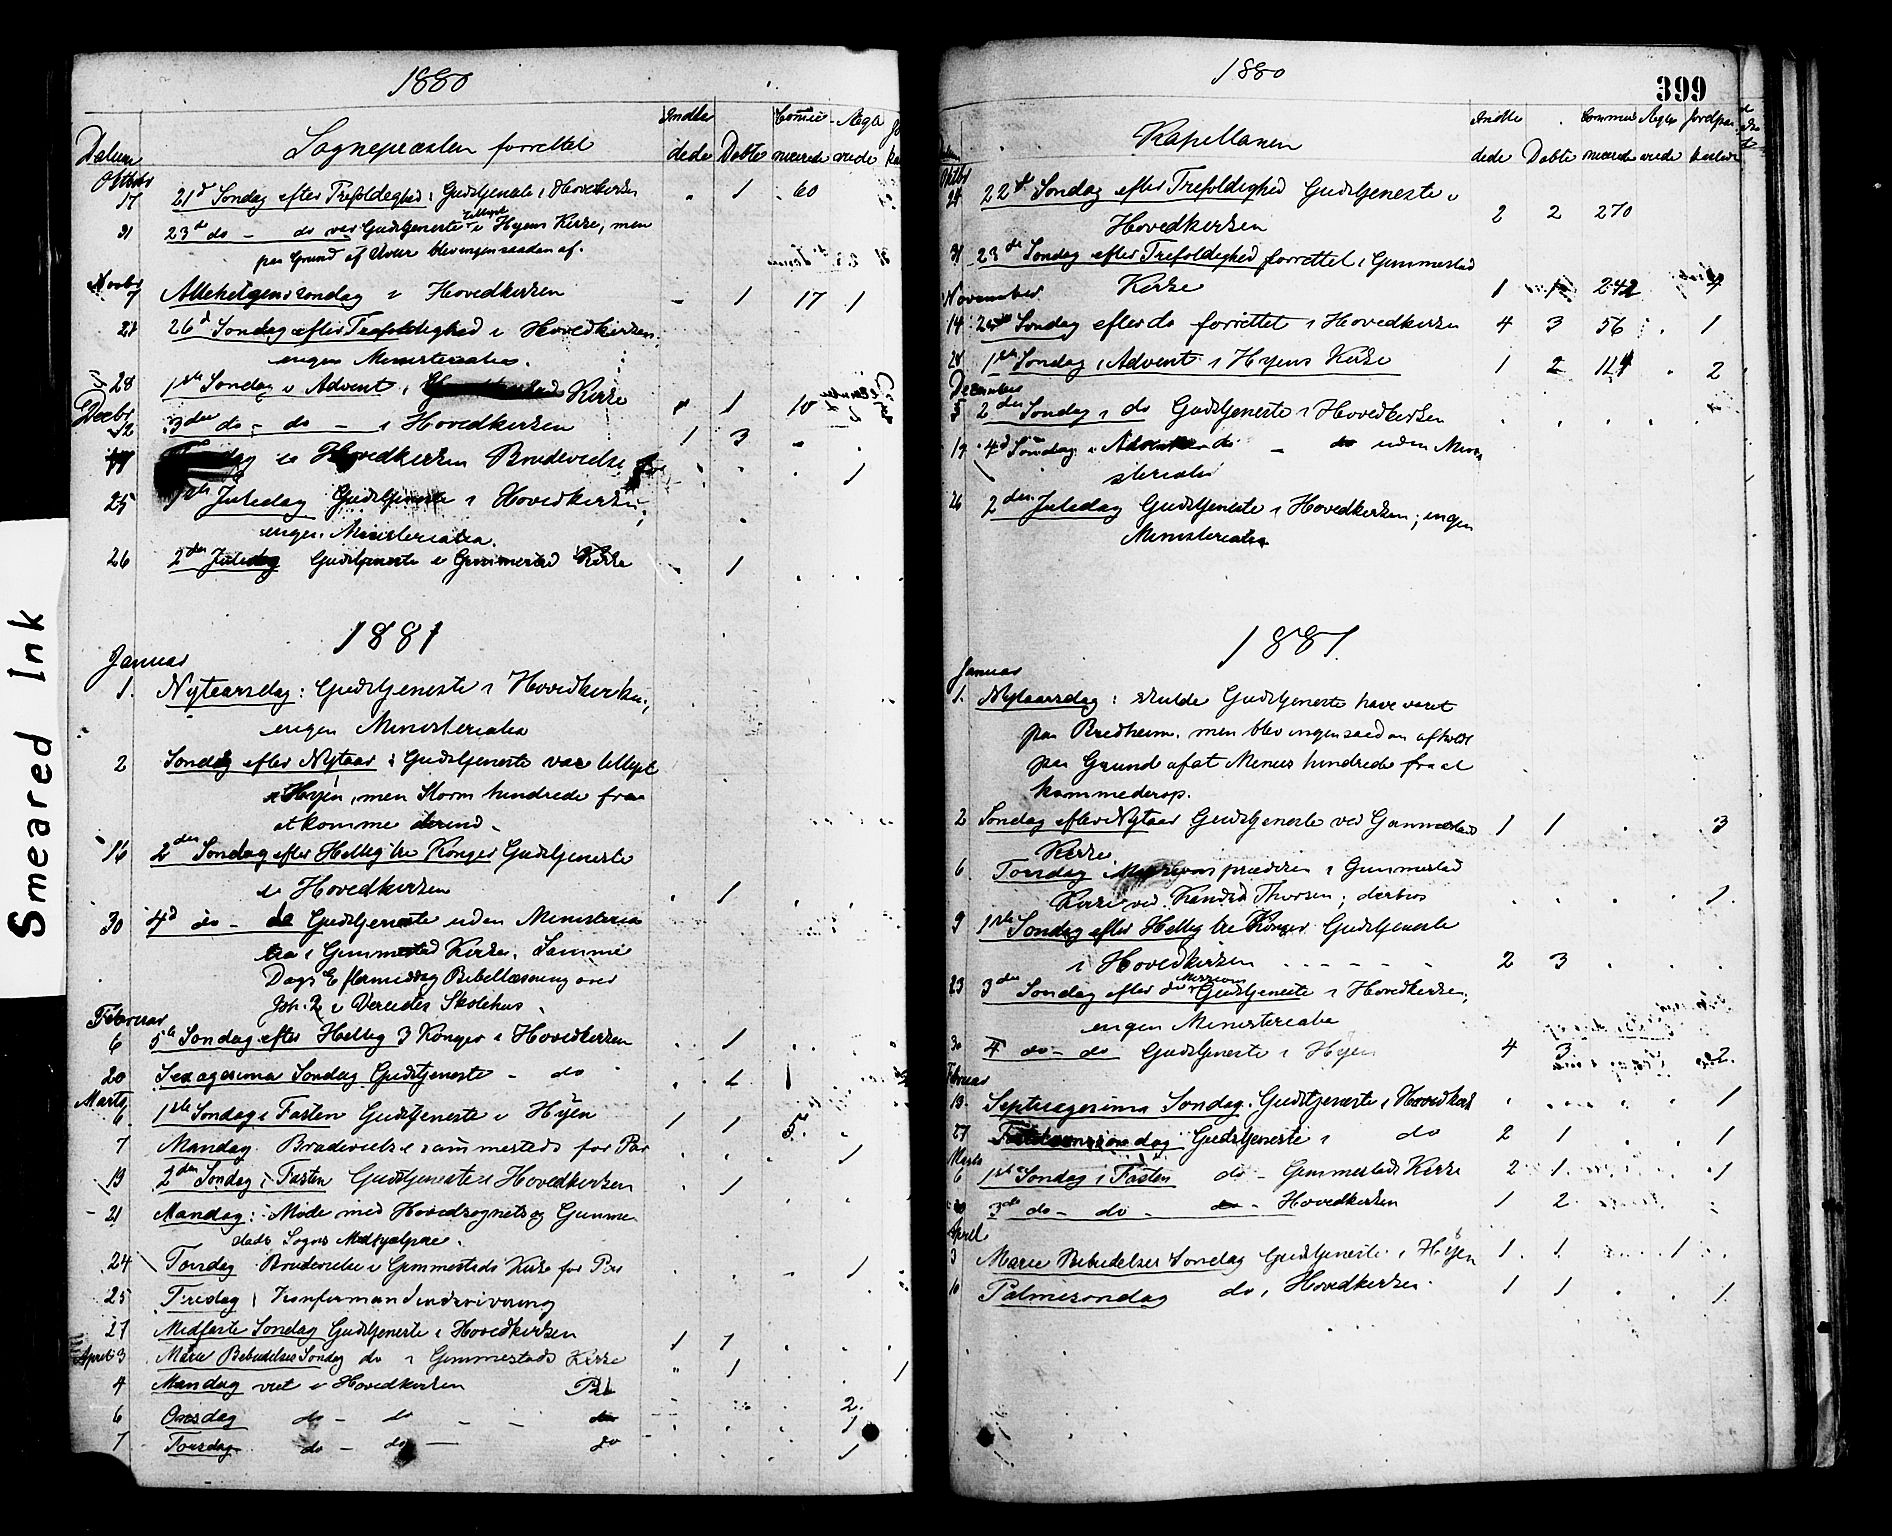 Smeared Ink
1880
Datum Sognepræsten forrettet Indlededede Døbte Communicerede Ægteviede
Oktbr
17 21d Søndag efter Trefoldighed: Gudstjeneste i Hovedkirken 1 60
31 23de do - do var Gudstjeneste tillyst i Hyens Kirke, men
paa Grund af Uveir blev ingen saadan af.
Novbr
7 Allehelgenssøndag i Hovedkirken - 1 17 1
21 26d Søndag efter Trefoldighed i Hovedkirken
ingen Ministerialia.
28 1ste Søndag i Advent i Kirke 1 10
Decbr
12 3die do - do - i Hovedkirken 1 3
i Hovedkirken Brudevielse 1
25 1ste Juledag Gudstjeneste i Hovedkirken;
ingen Ministerialia.
26 2den Juledag Gudstjeneste i Gimmestad Kirke 1
1881
Januar
1. Nytaarsdag: Gudstjeneste i Hovedkirken;
ingen Ministerialia
2 Søndag efter Nytaar: Gudstjeneste var tillyst
i Hyen, men Storm hindrede fra
at komme derind.
16 2den Søndag efter Hellig tre Konger Gudstjeneste
i Hovedkirken 1
30 4d do - do Gudstjeneste uden Ministeria
lia i Gimmestad Kirke. Samme
Dags Eftermiddag Bibellæsning over
Joh. 2 i Vereides Skolehus.
Februar
6 5te Søndag efter Hellig 3 Konger i Hovedkirken 1
20 Sexagesima Søndag Gudstjeneste - do
Marts
6. 1ste Søndag i Fasten Gudstjeneste i Hyen 1 1 5
7 Mandag. Brudevielse sammesteds for Par 1
13 2den Søndag i Fasten Gudstjeneste i Hovedkirken 1
21 Mandag: Møde med Hovedsognets og Gimme
stads Sogns Medhjælpere.
24 Torsdag Brudevielse i Gimmestads Kirke for Par 1
25 Fredag Konfirmandindskrivning
27 Midfaste Søndag Gudstjeneste i Hovedkirken 1 1
April 3 Mariæ Bebudelses Søndag do i Gimmestads Kirke 1 1
4 Mandag viet i Hovedkirken Par
6 Onsdag do - do - - do 2.
1
7 Torsdag do - do - do 1
1880
399
Kapellanen Indlededede Døbte Communicerede Ægteviede Jordpaakastede
Oktbr
24 22d Søndag efter Trefoldighed Gudstjeneste i
Hovedkirken 2 2 270
31 23de Søndag efter Trefoldighed forrettet i Gimmestad
Kirke 1 1 242
November
14 Søndag efter do forrettet i Hovedkirken 4 3 56 1
28 1ste Søndag i Advent i Hyens Kirke 1 2 2
December
5 2den Søndag i do Gudstjeneste i Hovedkirken
19 4d Søndag i Advent do - do uden Mini
sterialia
26 2den Juledag Gudstjeneste i Hovedkirken; ingen
Ministerialia
1881.
Januar
1. Nytaarsdag: skulde Gudstjeneste have været
paa Bredheim. men blev ingen saadan afholdt
paa Grund af at Menes hindrede fra at
komme derop.
2 Søndag efter Nytaar Gudstjeneste ved Gimmestad
Kirke. 1 1 3
6 Torsdag Missionsprædiken i Gimmestad
Kirke ved Kandid Thorsen; derhos 1
9 1ste Søndag efter Hellig tre Konger Gudstjeneste
i Hovedkirken 2 3
23 3die Søndag efter do Missions Gudstjeneste i Hovedkirken;
ingen Ministerialia
30 4 do - do Gudstjeneste i Hyen 4 3 2.
Februar
13. Septuagesima Søndag. Gudstjeneste i Hovedkirk 1
27 Fastelavnssøndag Gudstjeneste i do 2 1 1
Marts
6 1ste Søndag i Fasten do - Gimmestads Kirke 2 1 1
3die do - do - do - Hovedkirken 1 2
April
3 Mariæ Bebudelses Søndag Gudstjeneste i Hyen 1 1. 1
10 Palmesøndag do i Hovedkirken 1 1 1